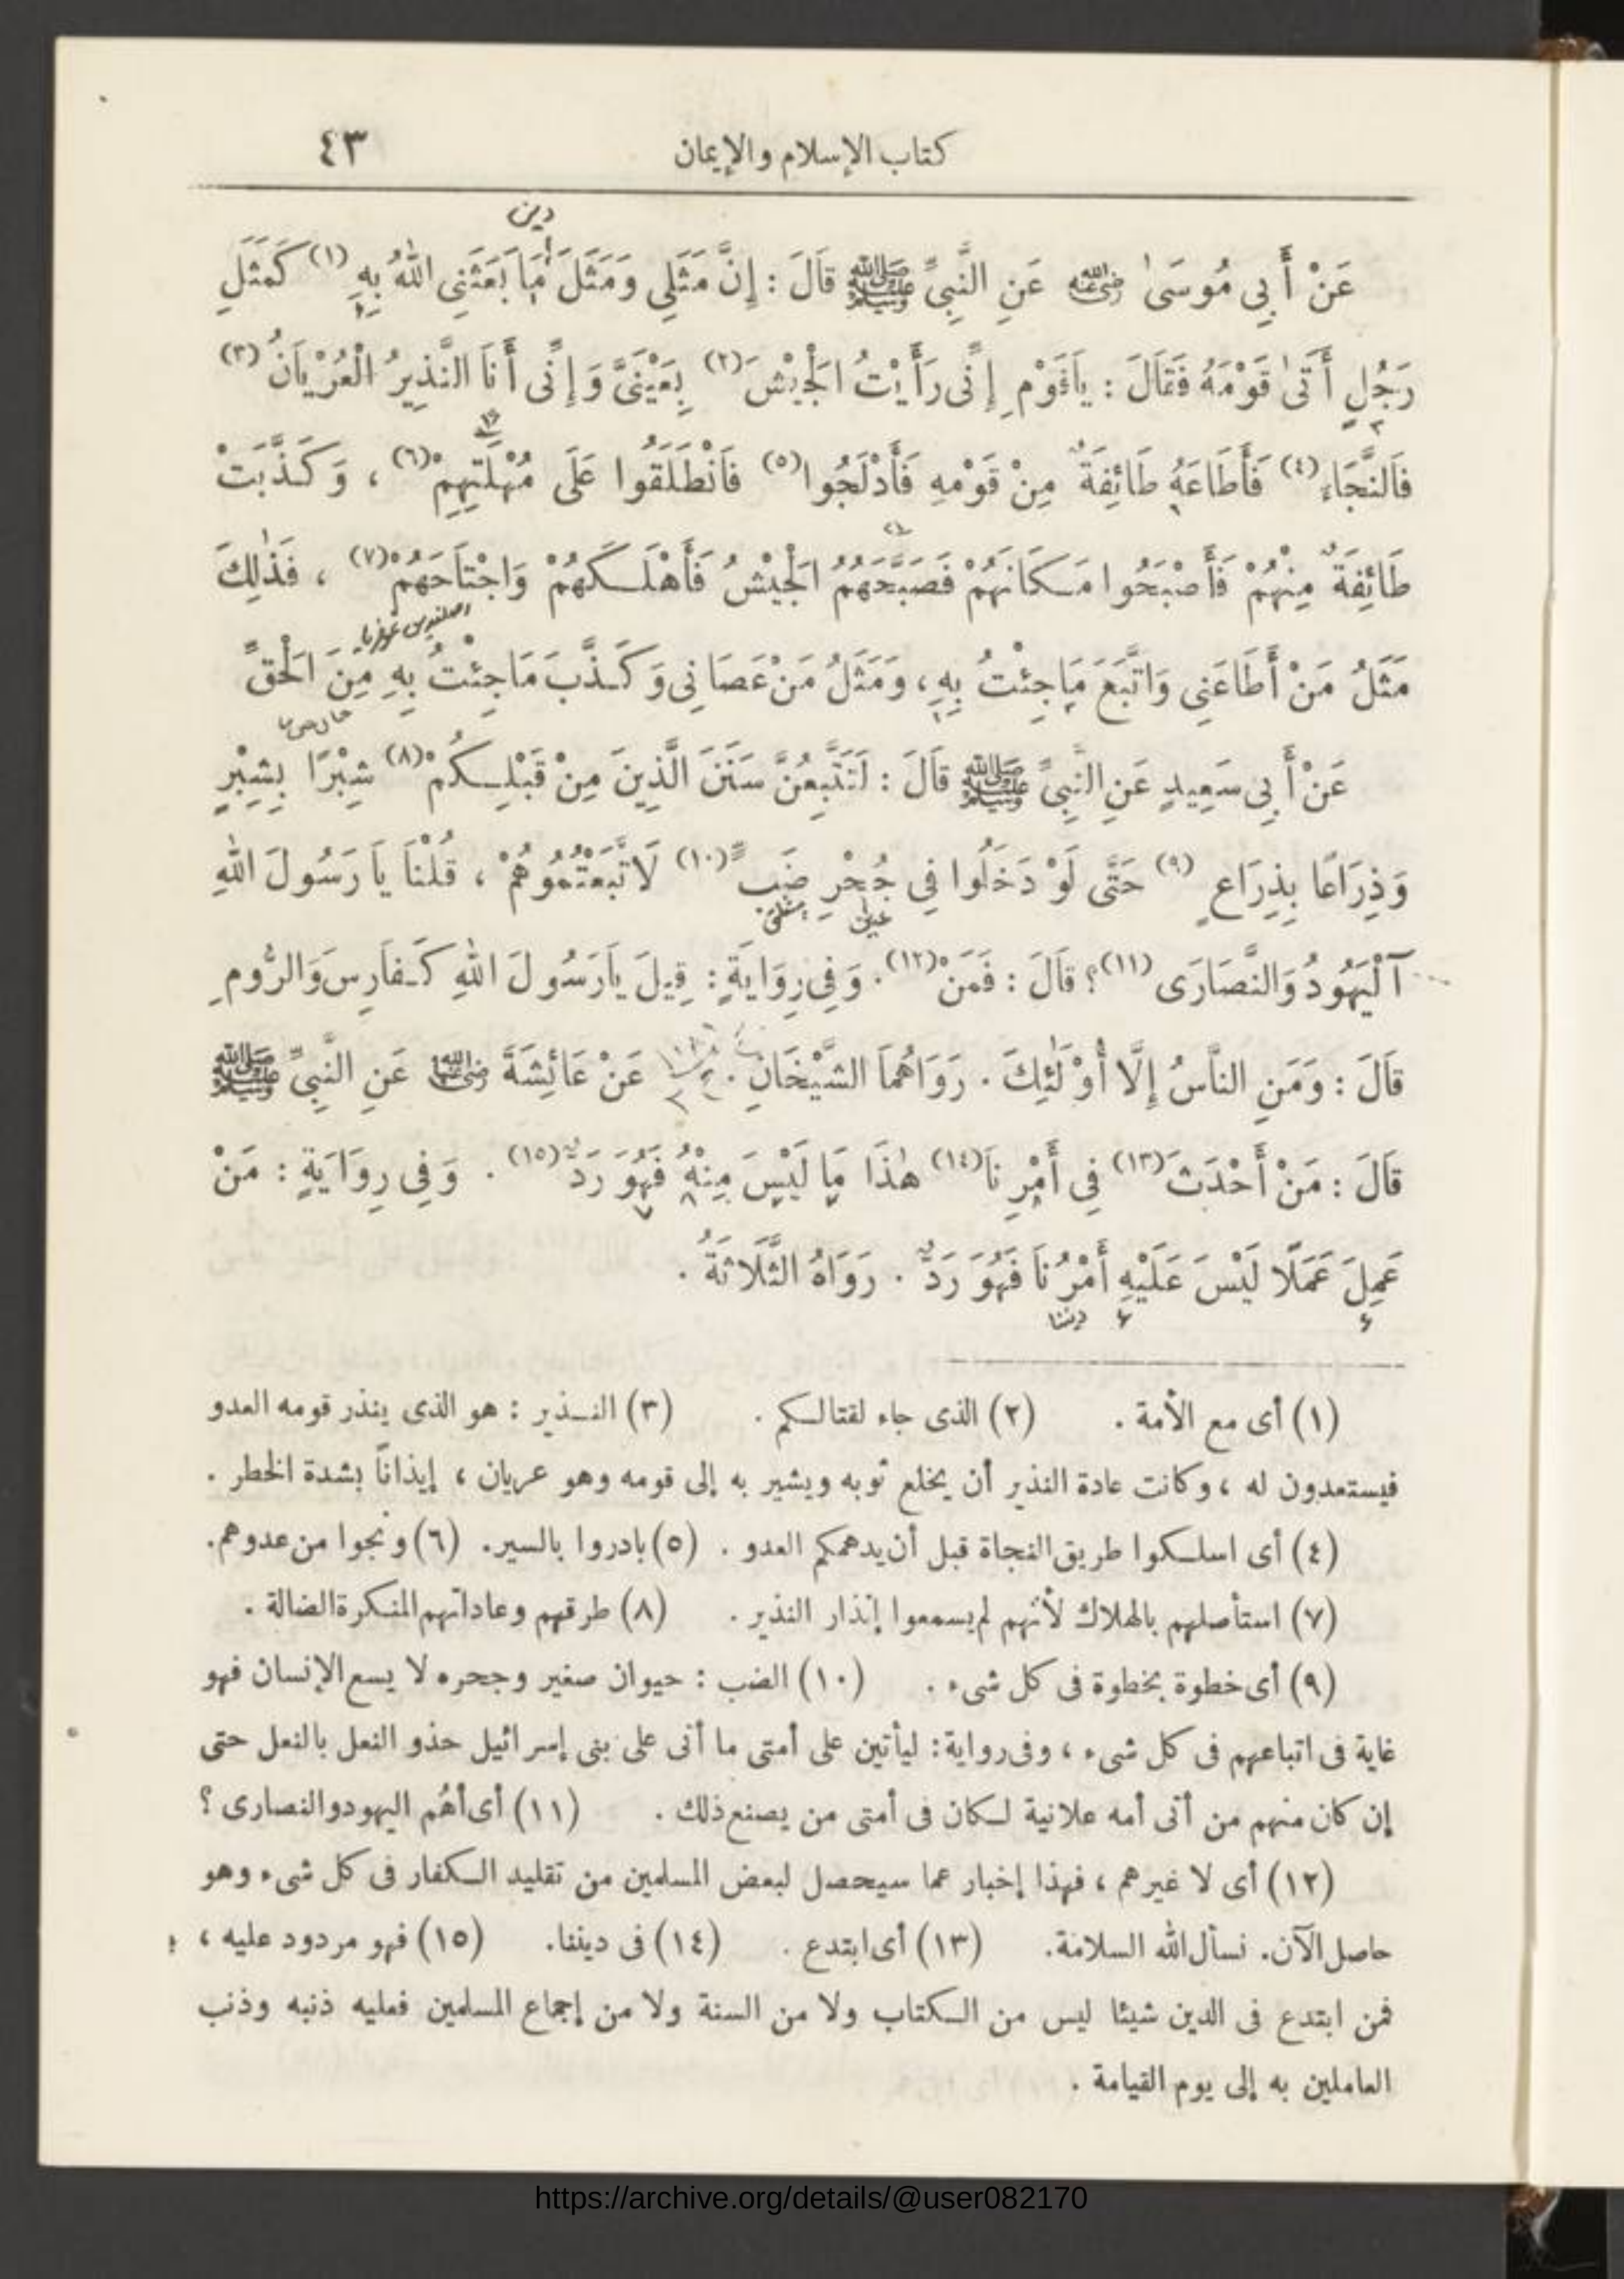 كتاب الإسلام والإيمان ٤٣
دين
عَنْ أَبِي مُوسَىٰ رضي الله عنه عَنِ النَّبِيِّ ﷺ قَالَ : إِنَّ مَثَلِي وَمَثَلَ مَا بَعَثَنِي اللهُ بِهِ (١) كَمَثَلِ
رَجُلٍ أَتَىٰ قَوْمَهُ فَقَالَ : يَاقَوْمِ إِنِّى رَأَيْتُ الْجَيْشَ (٢) بِعَيْنَىَّ وَإِنِّى أَنَا النَّذِيرُ الْعُرْيَانُ (٣)
فَالنَّجَاءَ (٤) فَأَطَاعَهُ طَائِفَةٌ مِنْ قَوْمِهِ فَأَدْلَجُوا (٥) فَانْطَلَقُوا عَلَى مُهْلَتِهِمْ (٦) ، وَكَذَّبَتْ
طَائِفَةٌ مِنْهُمْ فَأَصْبَحُوا مَكَانَهُمْ فَصَبَّحَهُمُ الْجَيْشُ فَأَهْلَكَهُمْ وَاجْتَاحَهُمْ (٧) ، فَذٰلِكَ
مَثَلُ مَنْ أَطَاعَنِي وَاتَّبَعَ مَاجِئْتُ بِهِ ، وَمَثَلُ مَنْ عَصَانِى وَكَذَّبَ مَاجِئْتُ بِهِ مِنَ الْحَقِّ
عَنْ أَبِى سَعِيدٍ عَنِ النَّبِيِّ ﷺ قَالَ : لَتَتَّبِعُنَّ سَنَنَ الَّذِينَ مِنْ قَبْلِكُمْ (٨) شِبْرًا بِشِبْرٍ
وَذِرَاعًا بِذِرَاعٍ (٩) حَتَّى لَوْ دَخَلُوا فِي جُحْرِ ضَبٍّ (١٠) لَاتَّبَعْتُمُوهُمْ ، قُلْنَا يَا رَسُولَ اللهِ
آلْيَهُودُ وَالنَّصَارَى (١١)؟ قَالَ : فَمَنْ (١٢) . وَفِى رِوَايَةٍ : قِيلَ يَارَسُولَ اللهِ كَفَارِسَ وَالرُّومِ
قَالَ : وَمَنِ النَّاسُ إِلَّا أُوْلٰئِكَ . رَوَاهُمَا الشَّيْخَانِ . عَنْ عَائِشَةَ رضي الله عنها عَنِ النَّبِيِّ ﷺ
قَالَ : مَنْ أَحْدَثَ (١٣) فِى أَمْرِنَا (١٤) هٰذَا مَا لَيْسَ مِنْهُ فَهُوَ رَدٌّ (١٥) . وَفِى رِوَايَةٍ : مَنْ
عَمِلَ عَمَلًا لَيْسَ عَلَيْهِ أَمْرُنَا فَهُوَ رَدٌّ . رَوَاهُ الثَّلَاثَةُ .
ديننا
(١) أى مع الأمة . (٢) الذى جاء لقتالكم . (٣) النذير : هو الذى ينذر قومه العدو
فيستعدون له ، وكانت عادة النذير أن يخلع ثوبه ويشير به إلى قومه وهو عريان ، إيذاناً بشدة الخطر .
(٤) أى اسلكوا طريق النجاة قبل أن يدهمكم العدو . (٥) بادروا بالسير. (٦) ونجوا من عدوهم.
(٧) استأصلهم بالهلاك لأنهم لم يسمعوا إنذار النذير . (٨) طرقهم وعاداتهم المنكرة الضالة .
(٩) أى خطوة بخطوة فى كل شىء . (١٠) الضب : حيوان صغير وجحره لا يسع الإنسان فهو
غاية فى اتباعهم فى كل شىء ، وفى رواية : ليأتين على أمتى ما أتى على بنى إسرائيل حذو النعل بالنعل حتى
إن كان منهم من أتى أمه علانية لكان فى أمتى من يصنع ذلك . (١١) أى أهُم اليهود والنصارى ؟
(١٢) أى لا غيرهم ، فهذا إخبار عما سيحصل لبعض المسلمين من تقليد الكفار فى كل شىء وهو
حاصل الآن. نسأل الله السلامة. (١٣) أى ابتدع . (١٤) فى ديننا. (١٥) فهو مردود عليه ،
فمن ابتدع فى الدين شيئا ليس من الكتاب ولا من السنة ولا من إجماع المسلمين فعليه ذنبه وذنب
العاملين به إلى يوم القيامة .
https://archive.org/details/@user082170